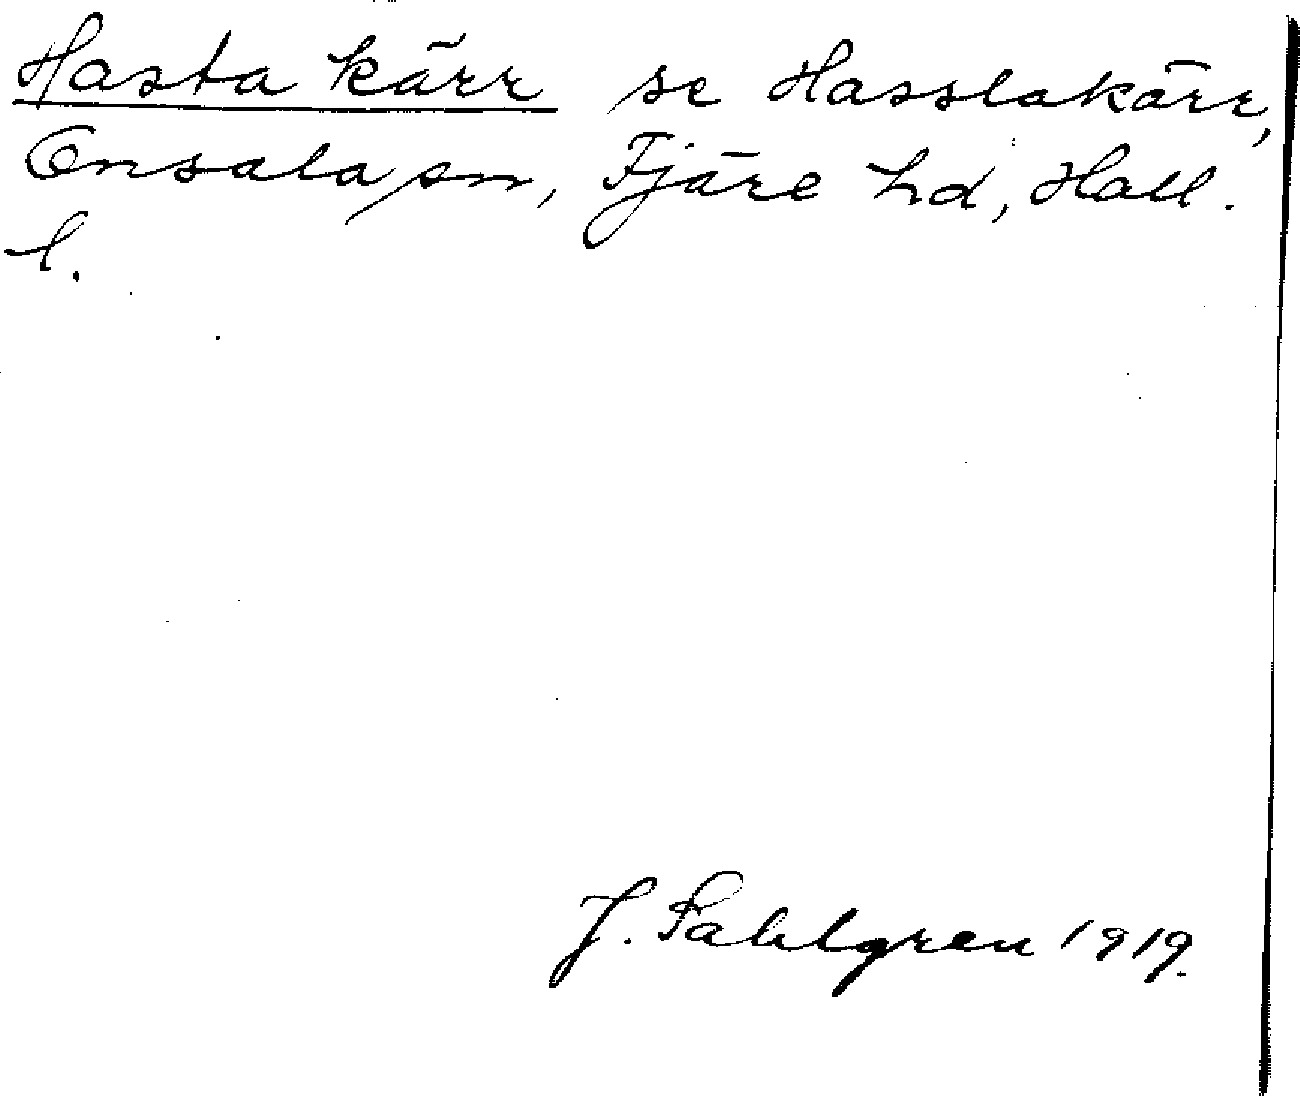 Hasta kärr se Hasslakärr,
Onsala sn, Fjäre hd, Hall.
l.
J. Sahlgren 1919.